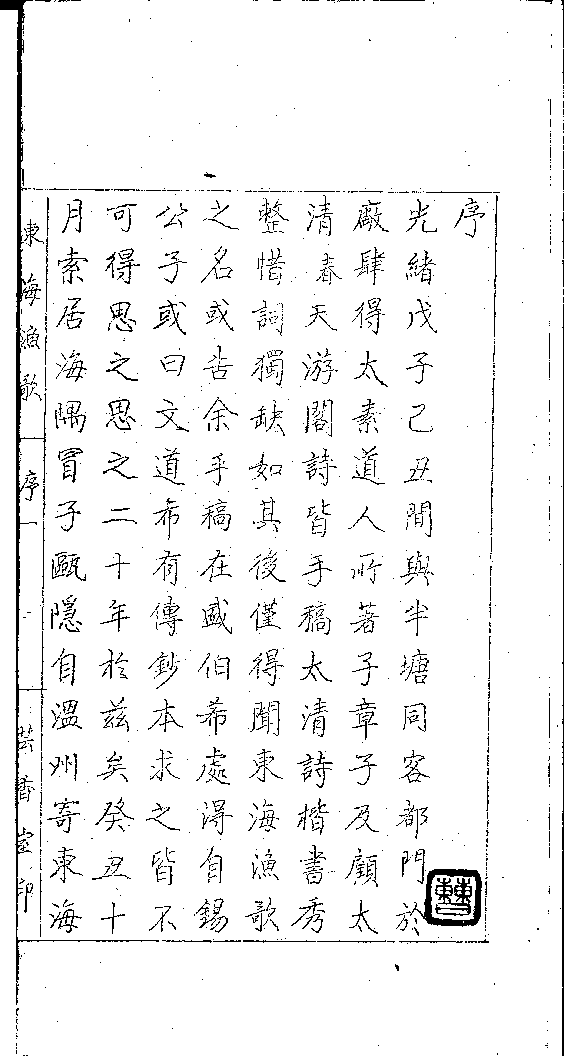 序
光緒戊子己丑間與半塘同客都門於
廠肆得太素道人所著子章子及顧太
清春天游閣詩皆手稿太清詩楷書秀
整惜詞獨缺如其後僅得聞東海漁歌
之名或告余手稿在盛伯希處得自錫
公子或曰文道希有傳鈔本求之皆不
可得思之思之二十年於茲矣癸丑十
月索居海隅冒子甌隱自溫州寄東海
東海漁歌
序一
芸香室印